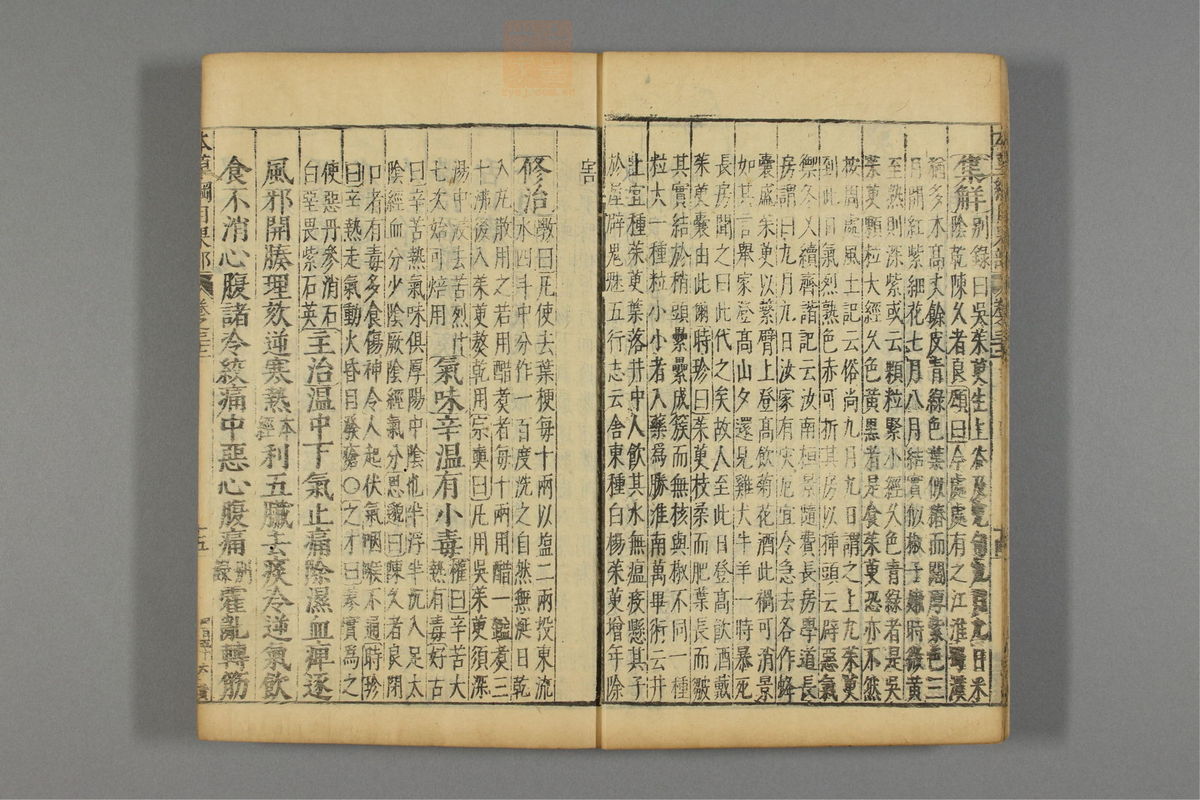 集解別錄曰吳茱萸生上谷及冤句九月九日采
陰乾陳久者良頌曰今處處有之江淮蜀漢
猶多木高丈餘皮青綠色葉似椿而闊厚紫色三
月開紅紫細花七月八月結實似椒子嫩時微黃
至熟則深紫或云顆粒緊小經久色青綠者是吳
茱萸顆粒大經久色黃黑者是食茱萸恐亦不然
按周處風土記云俗尚九月九日謂之上九茱萸
到此日氣烈熟色赤可折其房以插頭云辟惡氣
禦冬又續齊諧記云汝南桓景隨費長房學道長
房謂曰九月九日汝家有災厄宜令急去各作絳
囊盛茱萸以繫臂上登高飲菊花酒此禍可消景
如其言舉家登高山夕還見雞犬牛羊一時暴死
長房聞之曰此代之矣故人至此日登高飲酒戴
茱萸囊由此爾時珍曰茱萸枝柔而肥葉長而皺
其實結於梢頭纍纍成簇而無核與椒不同一種
粒大一種粒小小者入藥爲勝淮南萬畢術云井
上宜種茱萸葉落井中人飲其水無瘟疫懸其子
於屋辟鬼魅五行志云舍東種白楊茱萸增年除
害
修治斅曰凡使去葉梗每十兩以塩二兩投東流
水四斗中分作一百度洗之自然無涎日乾
入丸散用之若用醋煮者每十兩用醋一鎰煮三
十沸後入茱萸熬乾用宗奭曰凡用吳茱萸須深
湯中浸去苦烈汁
七次始可焙用
氣味辛温有小毒權曰辛苦大
熱有毒好古
曰辛苦熱氣味俱厚陽中陰也半浮半沉入足太
陰經血分少陰厥陰經氣分思邈曰陳久者良閉
口者有毒多食傷神令人起伏氣咽喉不通時珍
曰辛熱走氣動火昏目發瘡○之才曰蓼實爲之
使惡丹參消石
白堊畏紫石英
主治温中下氣止痛除濕血痺逐
風邪開腠理欬逆寒熱本經利五臟去痰冷逆氣飲
食不消心腹諸冷絞痛中惡心腹痛別錄霍亂轉筋
本草綱目果部
卷之三十二
十五